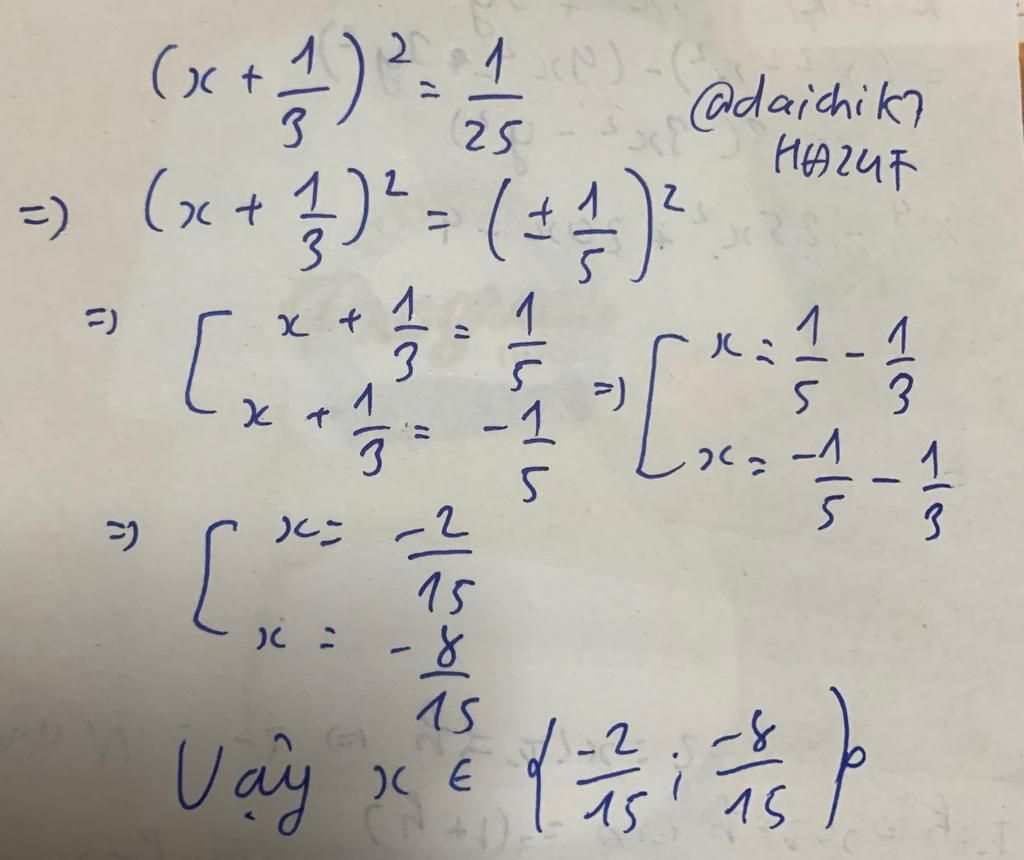 (x + 1/3)² = 1/25
@daichik7
=) (x + 1/3)² = (± 1/5)²
=) [ x + 1/3 = 1/5
x + 1/3 = - 1/5
=) [ x = 1/5 - 1/3
x = -1/5 - 1/3
=) [ x = -2/15
x = -8/15
Vậy x ∈ {-2/15 ; -8/15}